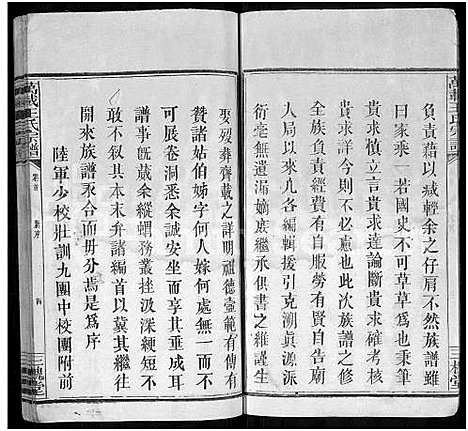 萬載王氏宗譜
三槐堂
負責藉以減輕余之仔肩不然族譜雖
曰家乘一若國史不可草草為也秉筆
求其慎立真求其達論斷貴求確考核
貴求詳今則不然此次校譜事業有自
全族負責經費有自服勞有自告廟
求進大人各編輯援引克溯真源派
衍毫無遺漏嫡庶繼承俱書之維謹生
娶歿葬齊載之詳明祖德壼範有傳有
贊諸姑伯姊字何人嫁何處無一而不
可展卷洞悉余誠安坐而享其垂成耳
譜事既蕆余縱蝟務叢挫汲深綆短不
敢不叙其本末弁諸編首以冀其繼往
開來族譜永合而毋分是為序
陸軍少校壯訓九團中校團附前
萬載王氏宗譜
卷首
三槐堂